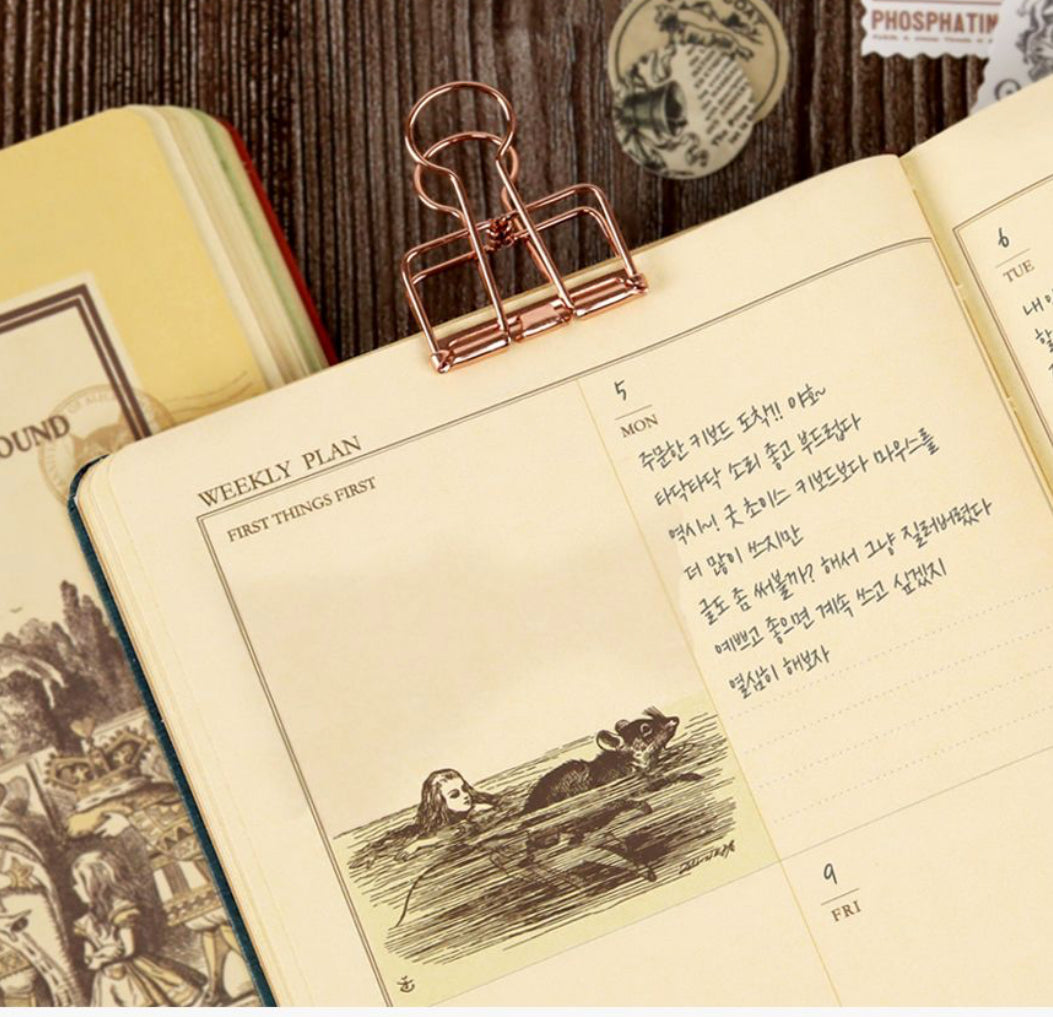 PHOSPHATIN
OUND
WEEKLY PLAN
FIRST THINGS FIRST
5
MON
주문한 키보드 도착!! 야호~
타닥타닥 소리 좋고 부드럽다
역시~! 굿 초이스 키보드보다 마우스를
더 많이 쓰지만
글도 좀 써볼까? 해서 그냥 질러버렸다
예쁘고 좋으면 계속 쓰고 싶겠지
열심히 해보자
6
TUE
내
할
9
FRI